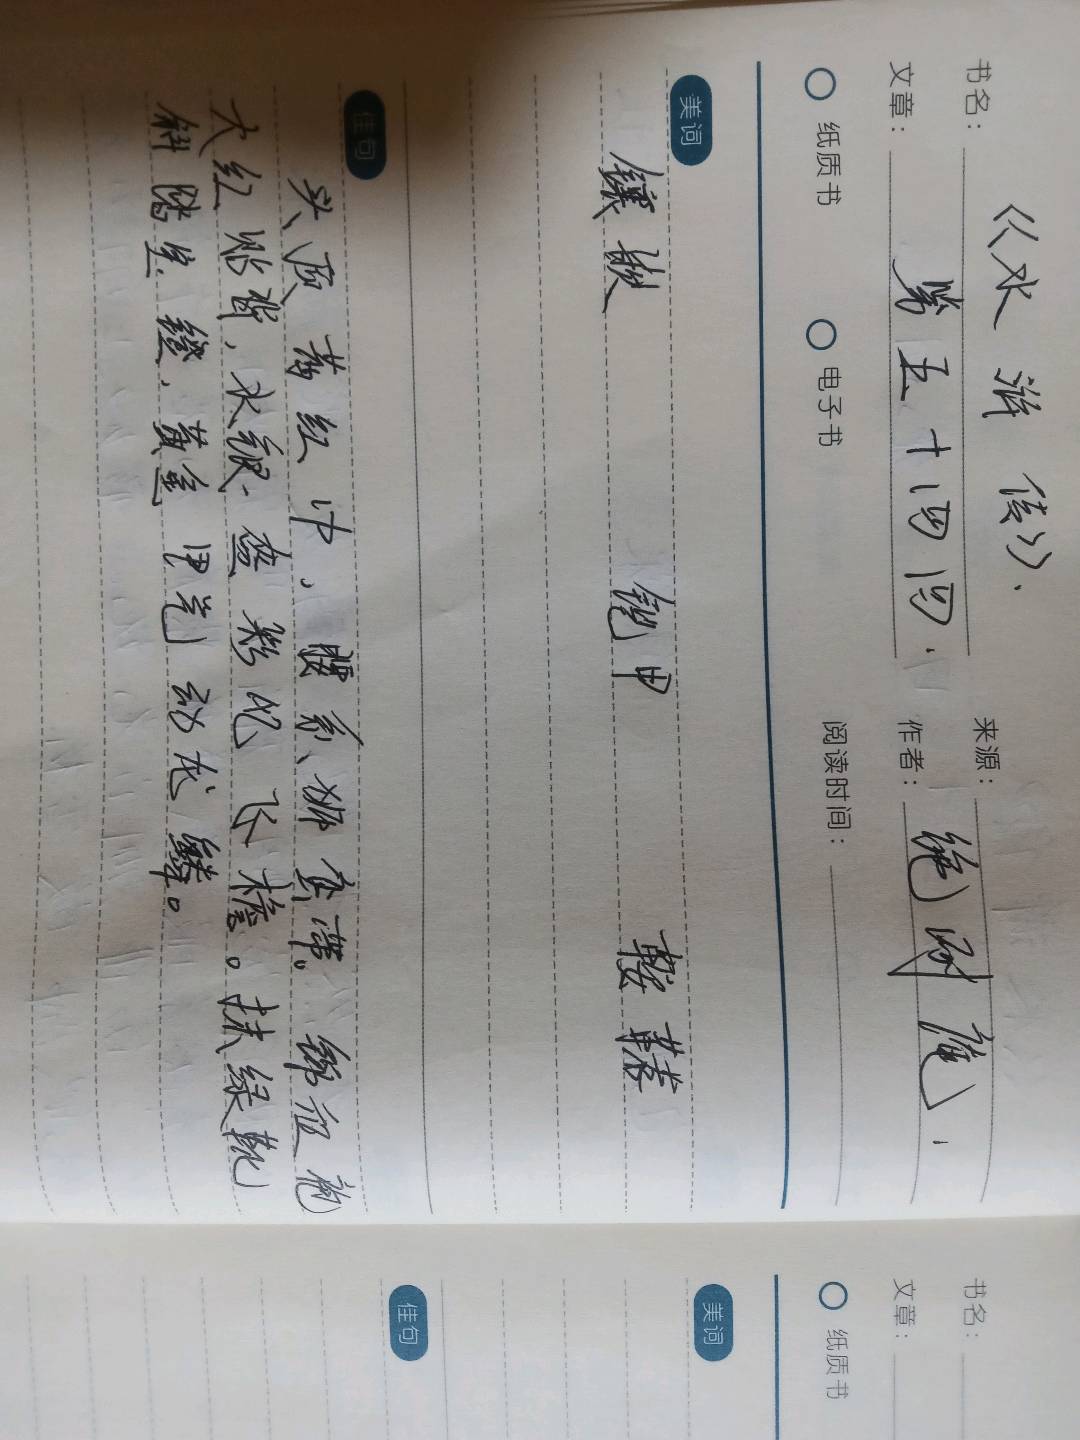 书名: 《水浒传》. 来源:
文章: 第五十四回. 作者: 施耐庵.
纸质书 电子书 阅读时间:
美词
镶嵌 铠甲 鞍鞯
佳句
头顶茜红巾,腰系狮蛮带。锦征袍
大红贴背,水银盔彩凤飞檐。抹绿靴
斜踏宝镫,黄金甲光动龙鳞。
书名:
文章:
纸质书
美词
佳句